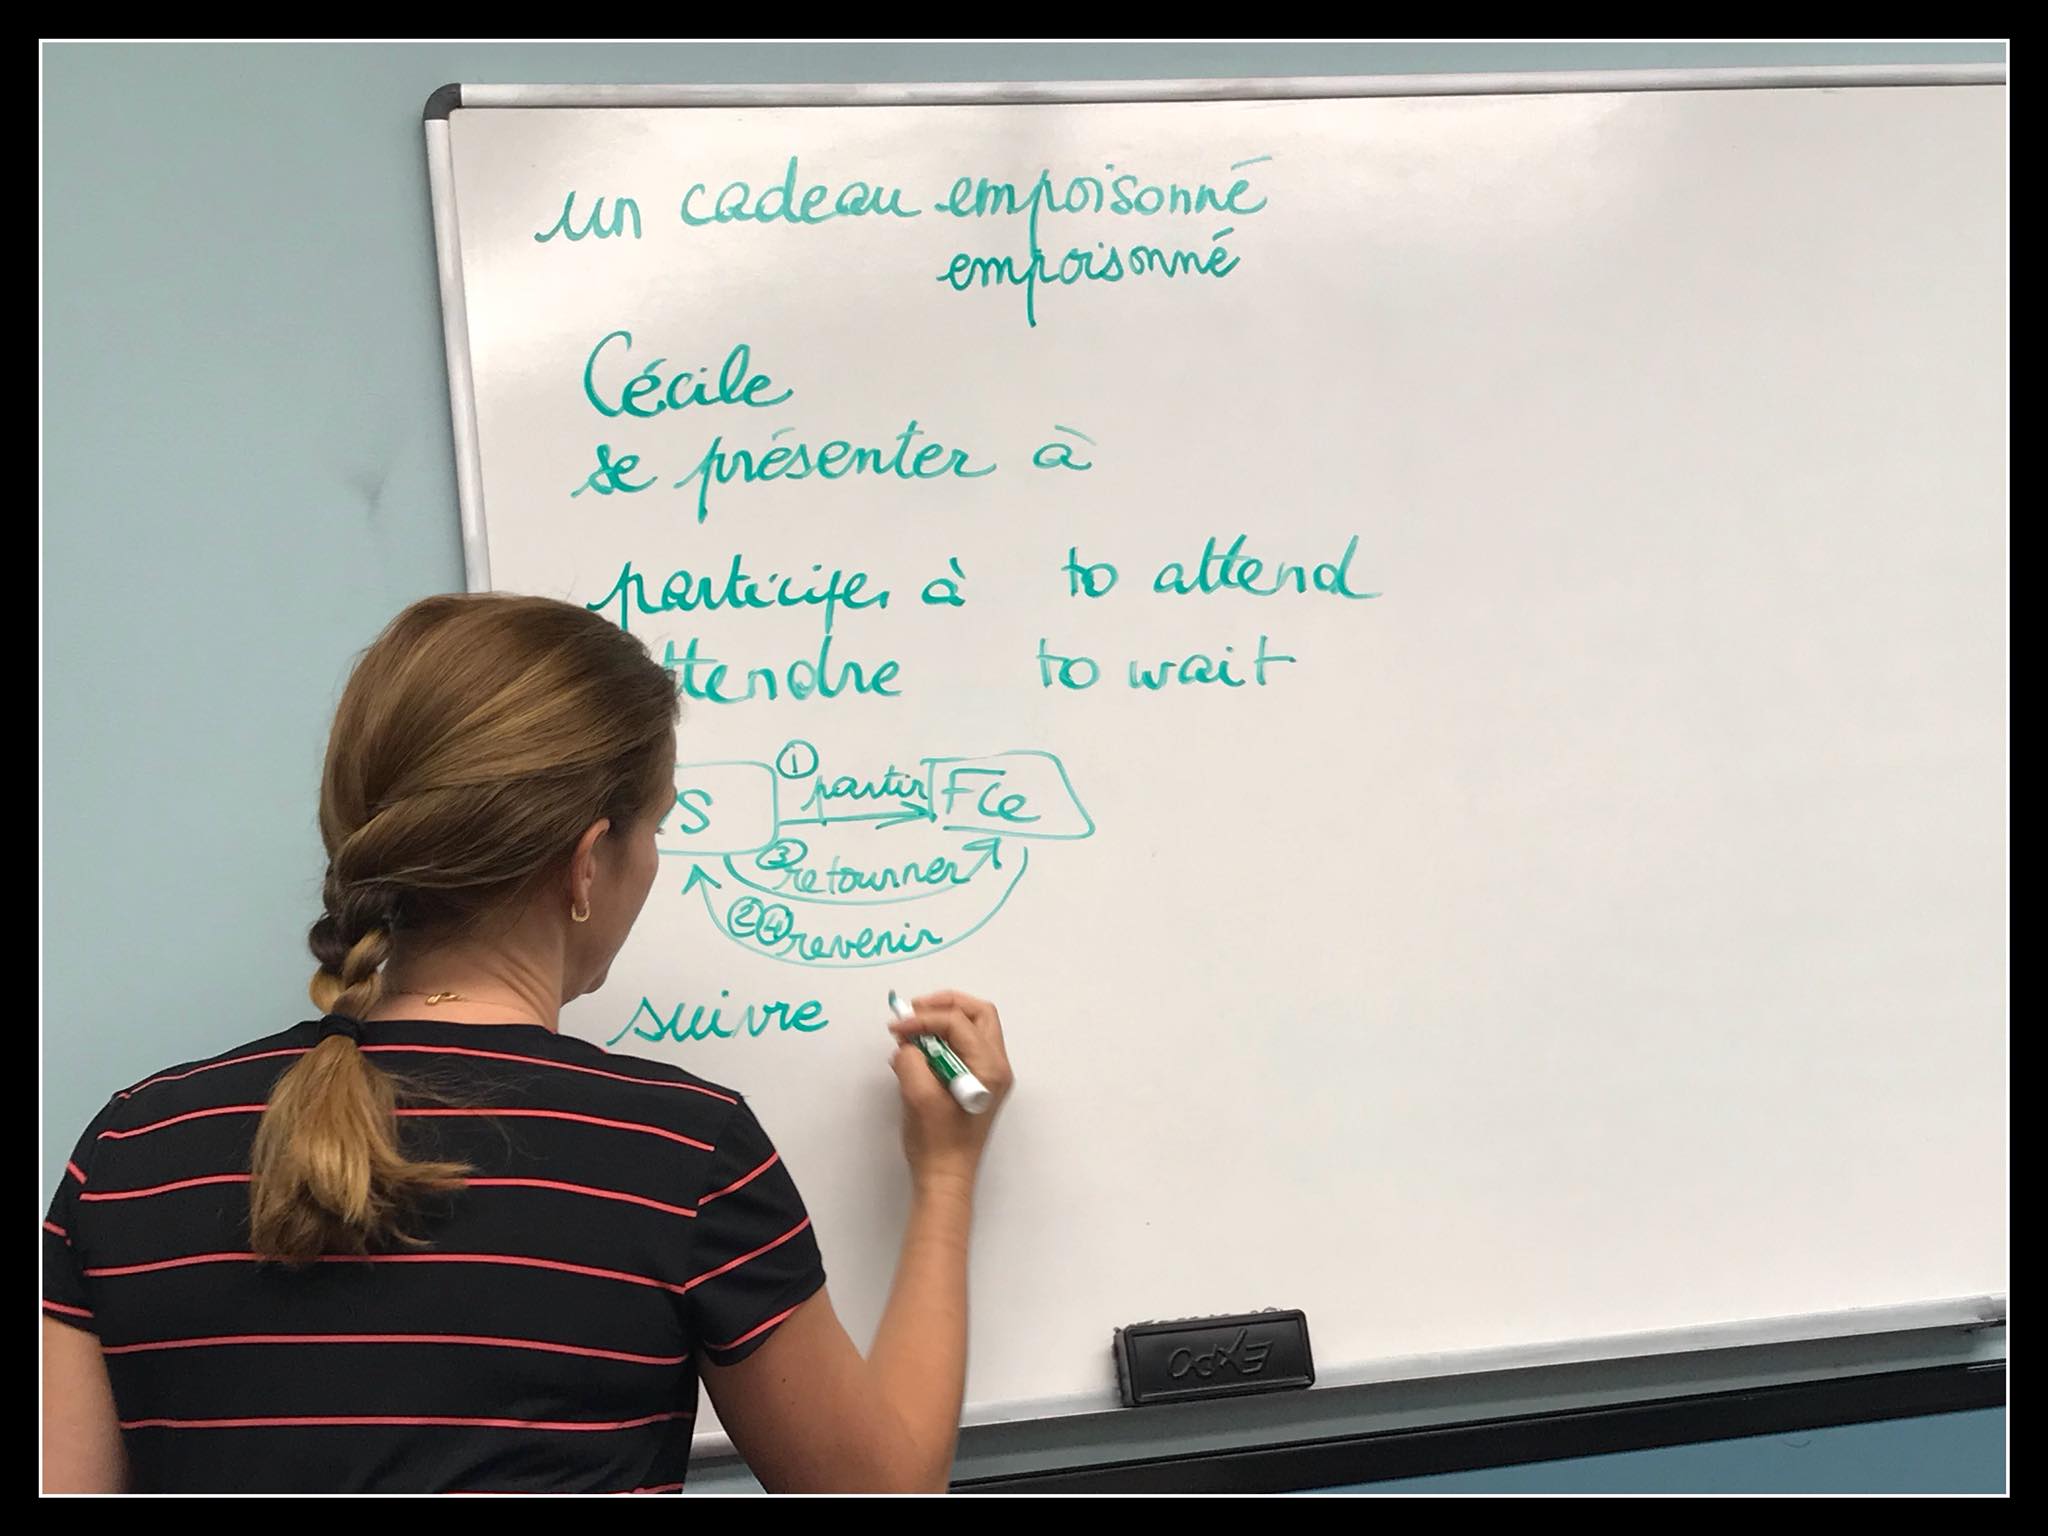 un cadeau empoisonné
empoisonné
Cécile
se présenter à
participer à to attend
ttendre to wait
S ① partir Fce
③ retourner
② ④ revenir
suivre
EXPO